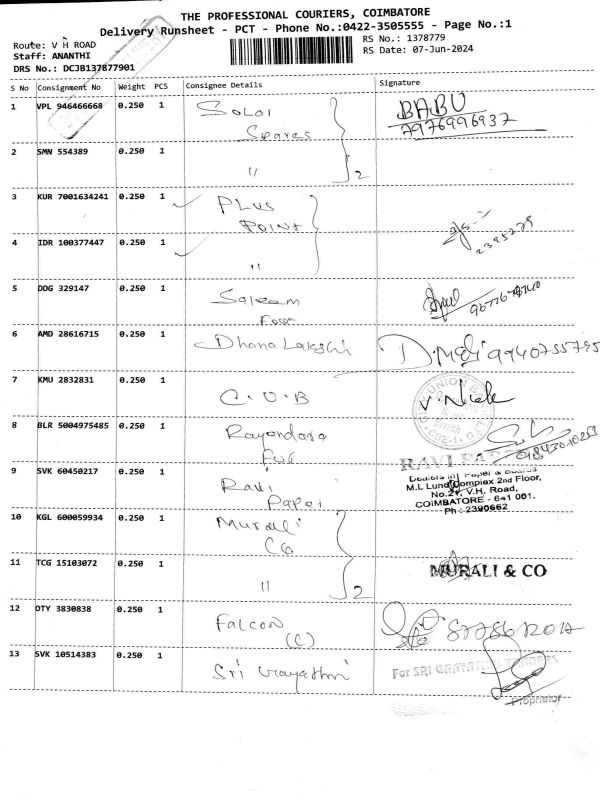 THE PROFESSIONAL COURIERS, COIMBATORE
Delivery Runsheet - PCT - Phone No.:0422-3505555 - Page No.:1
Route: V H ROAD
RS No.: 1378779
Staff: ANANTHI
RS Date: 07-Jun-2024
DRS No.: DCJB137877901
S No Consignment No Weight PCS Consignee Details Signature
1 VPL 946466668 0.250 1 Solai BABU
Spares 7976996937
2 SMN 554389 0.250 1 " 2
3 KUR 7001634241 0.250 1 PLUS
POINT 2395279
4 IDR 100377447 0.250 1 "
5 DDG 329147 0.250 1 Saleem
6 AMD 28616715 0.250 1 Dhana Lakshi 9940755795
7 KMU 2832831 0.250 1 C.U.B
8 BLR 5004975485 0.250 1
RAVI
9 SVK 60450217 0.250 1 Ravi Dealers in Paper & Boards
Paper M.L Lund Complex 2nd Floor,
No.21, V.H. Road,
COIMBATORE - 641 001.
Ph : 2390662
10 KGL 600059934 0.250 1 Murali
Co
11 TCG 15103072 0.250 1 " 2 MURALI & CO
12 OTY 3830838 0.250 1 Falcon
(C)
13 SVK 10514383 0.250 1 Sri For SRI
Proprietor